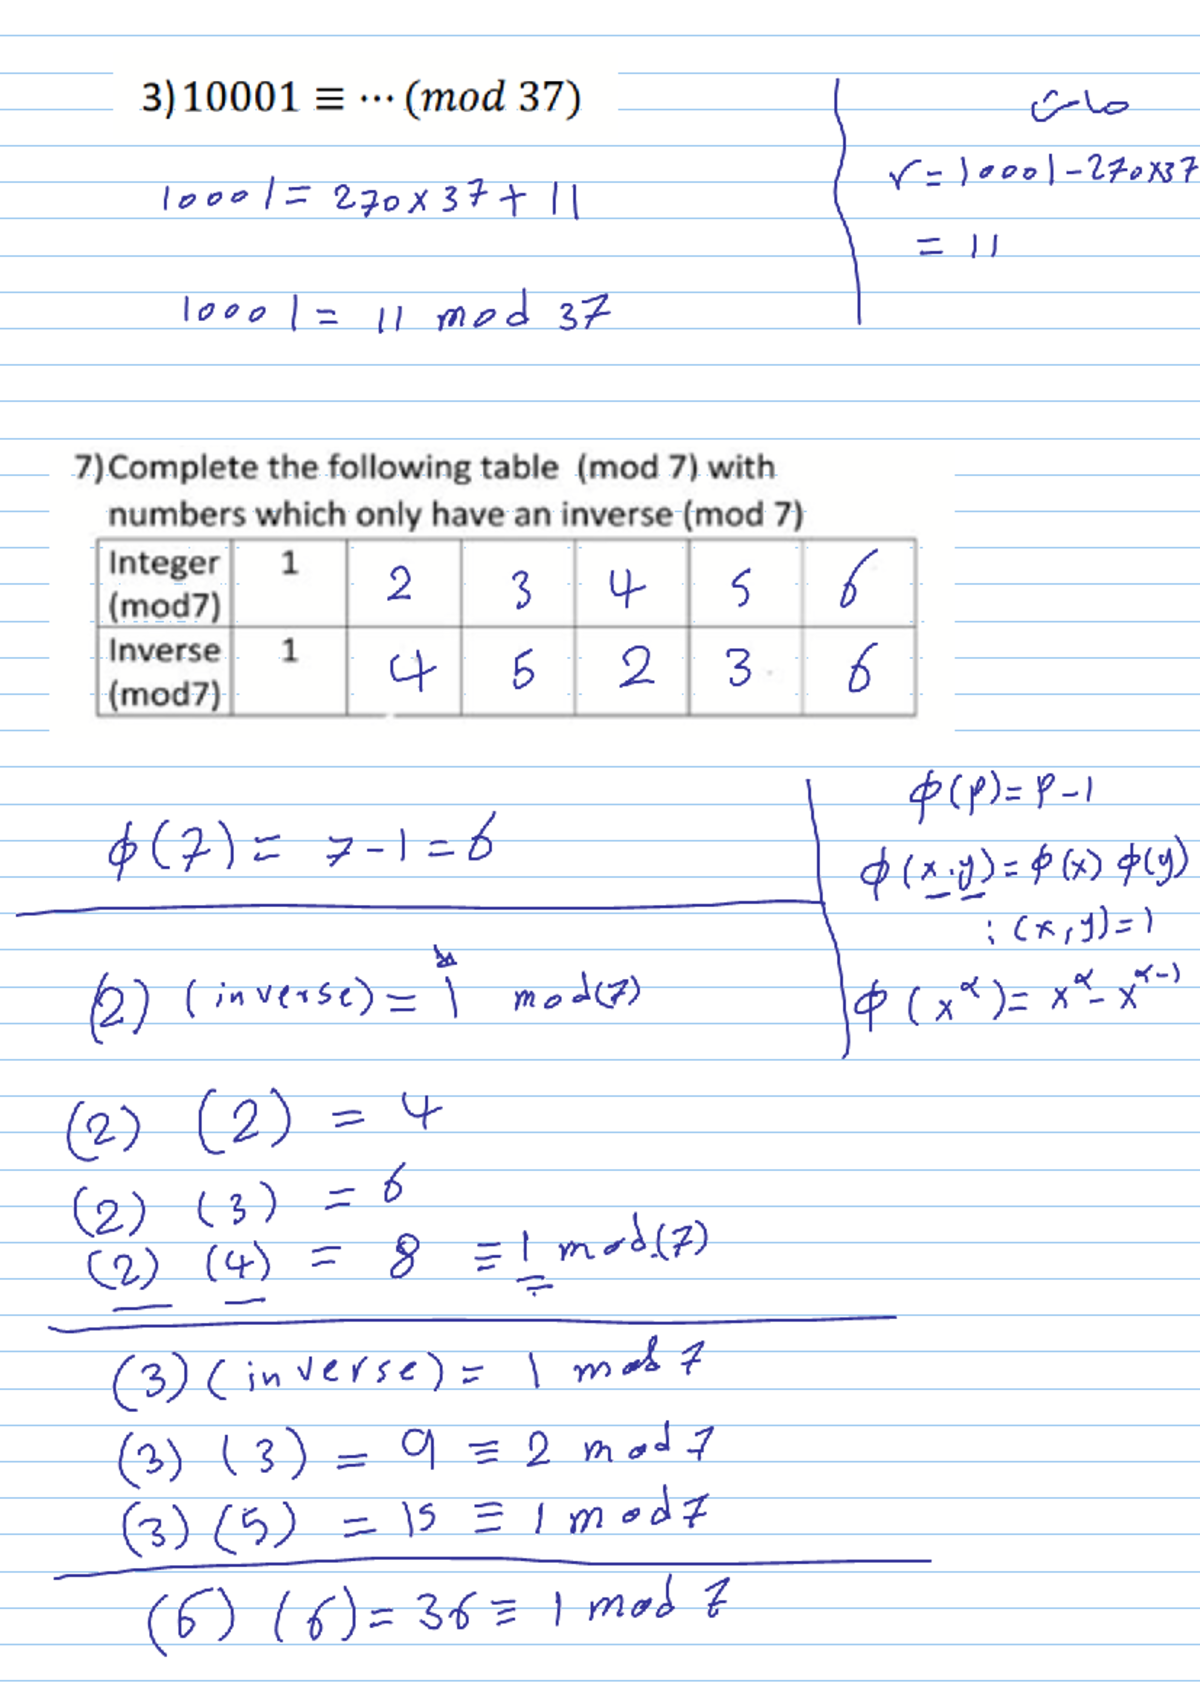 3) 10001 ≡ ⋯ (mod 37)
10001 = 270 × 37 + 11
10001 = 11 mod 37
r = 10001 - 270×37
= 11
7) Complete the following table (mod 7) with
numbers which only have an inverse (mod 7)
Integer (mod7) 1 2 3 4 5 6
Inverse (mod7) 1 4 5 2 3 6
ϕ(7) = 7-1 = 6
ϕ(p) = p-1
ϕ(x.y) = ϕ(x) ϕ(y)
: (x,y)=1
ϕ(x^α) = x^α - x^α-1
(2) (inverse) = 1 mod(7)
(2) (2) = 4
(2) (3) = 6
(2) (4) = 8 ≡ 1 mod(7)
(3) (inverse) = 1 mod 7
(3) (3) = 9 ≡ 2 mod 7
(3) (5) = 15 ≡ 1 mod 7
(6) (6) = 36 ≡ 1 mod 7